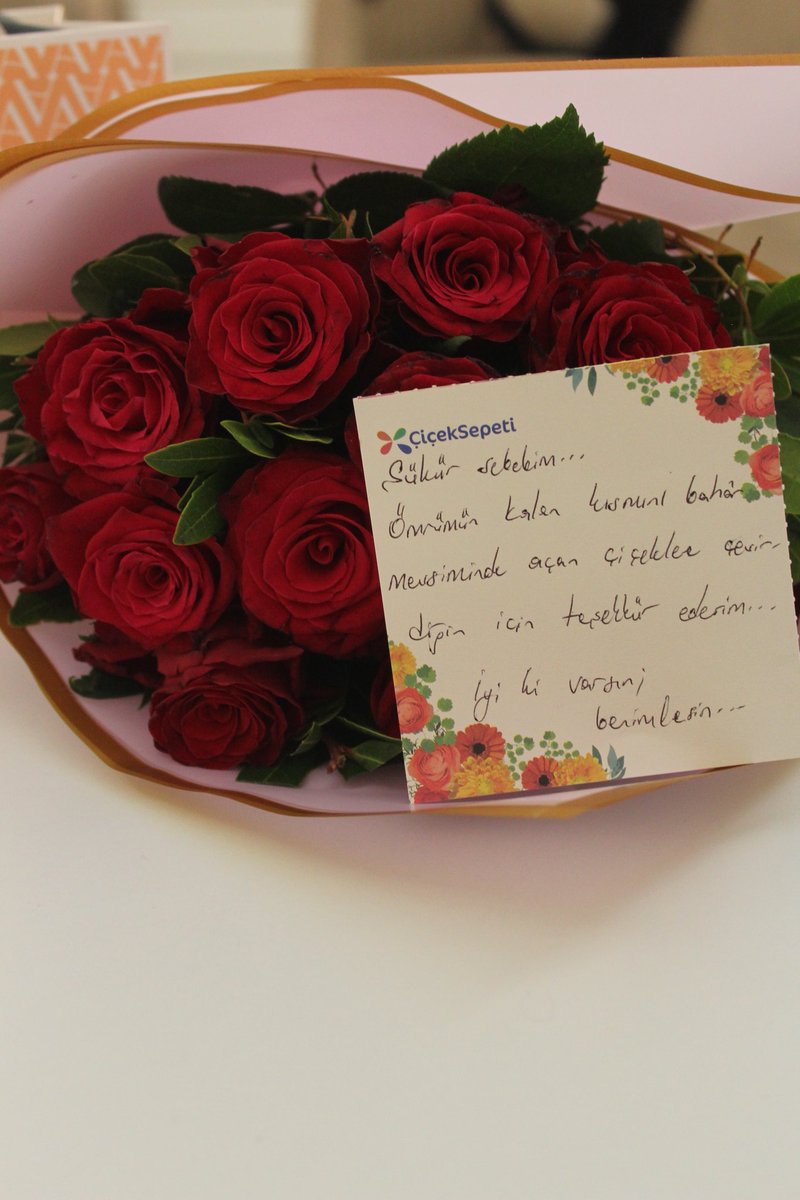 ÇiçekSepeti
Şükür sebebim...
Ömrümün kalan kısmını bahar
mevsiminde açan çiçeklere çevir-
diğin için teşekkür ederim...
İyi ki varsın,
benimlesin...